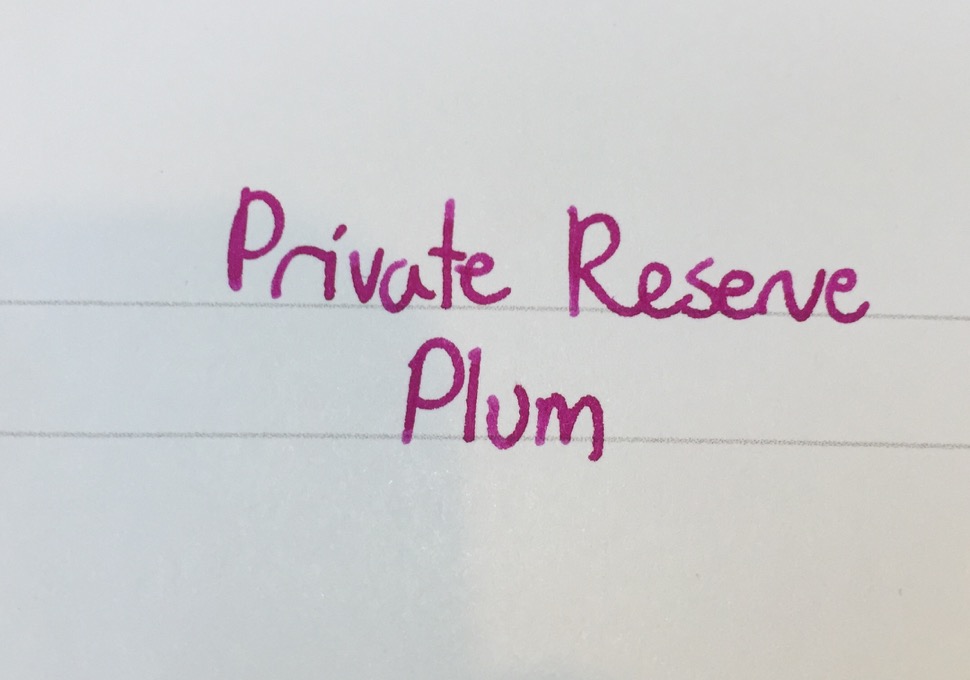 Private Reserve
Plum